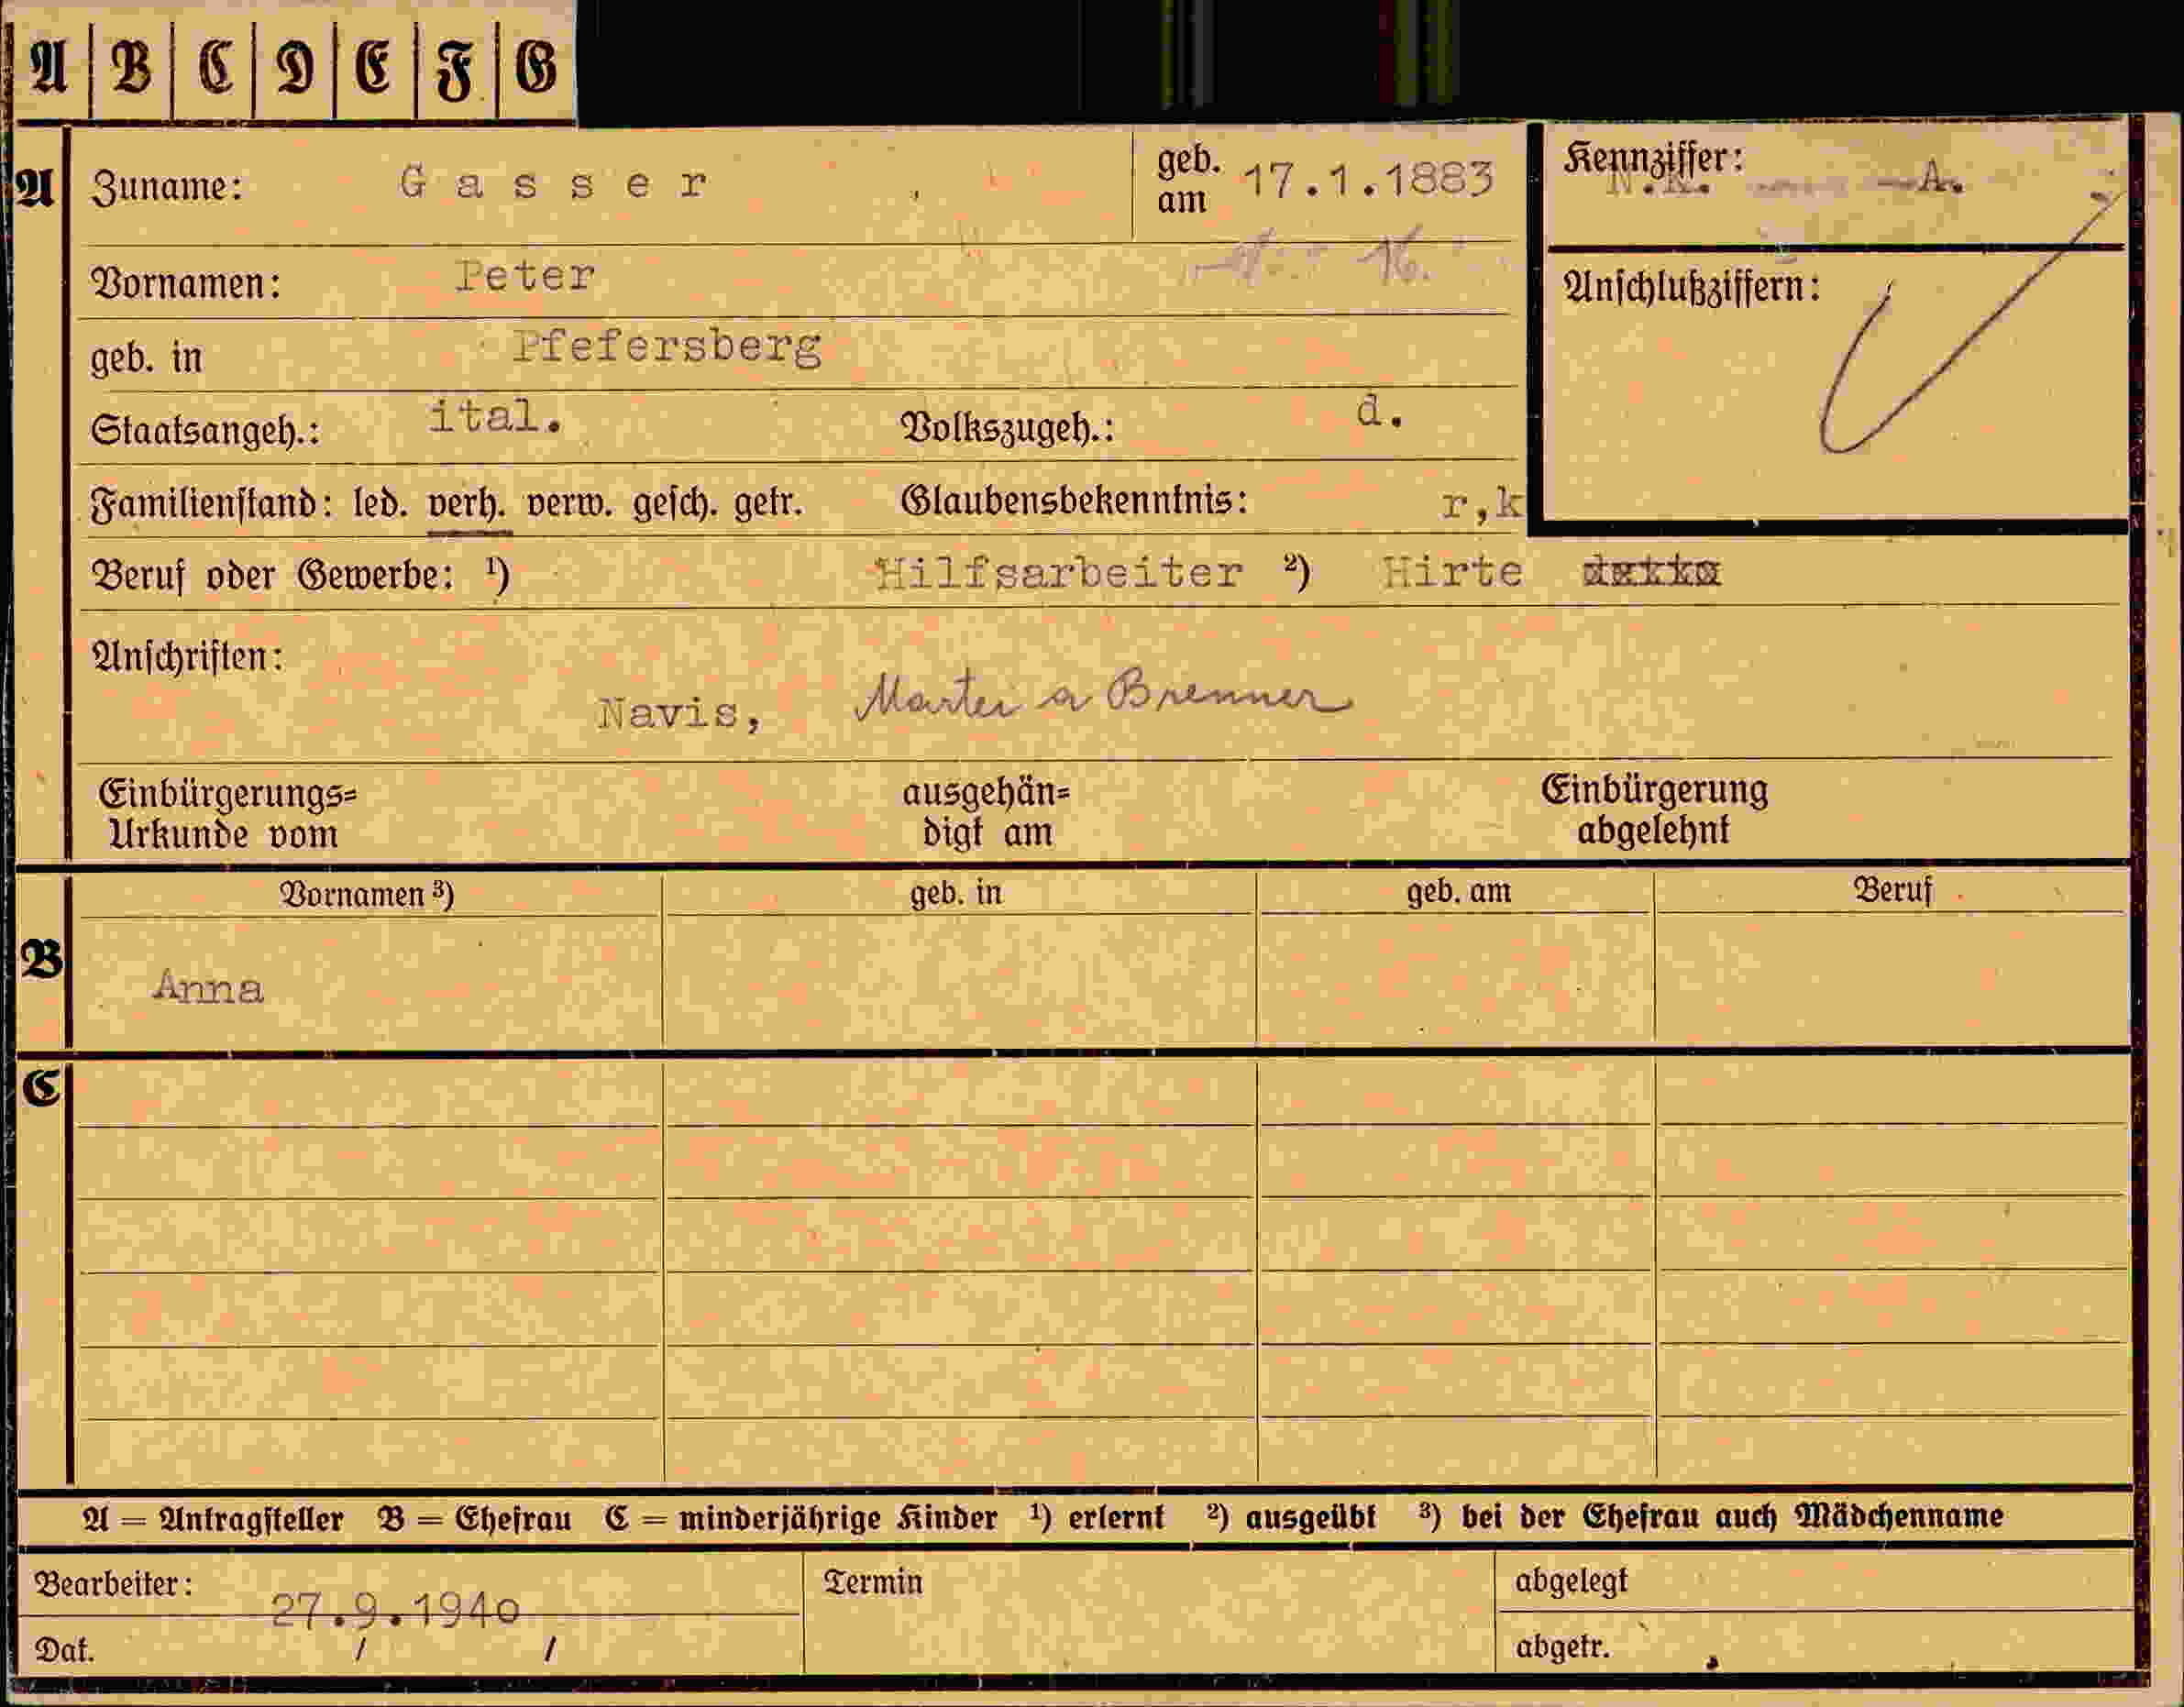 A B C D E F G
A Zuname: Gasser geb. am 17.1.1883 Kennziffer: N.R. A.
Vornamen: Peter 16.
Anschlußziffern:
geb. in Pfefersberg
Staatsangeh.: ital. Volkszugeh.: d.
Familienstand: led. verh. verw. gesch. getr. Glaubensbekenntnis: r,k
Beruf oder Gewerbe: ¹) Hilfsarbeiter ²) Hirte
Anschriften:
Navis, Martei a Brenner
Einbürgerungs= ausgehän= Einbürgerung
Urkunde vom digt am abgelehnt
Vornamen ³) geb. in geb. am Beruf
B
Anna
C
A = Antragsteller B = Ehefrau C = minderjährige Kinder ¹) erlernt ²) ausgeübt ³) bei der Ehefrau auch Mädchenname
Bearbeiter: Termin abgelegt
27.9.1940
Dat. / / abgetr.